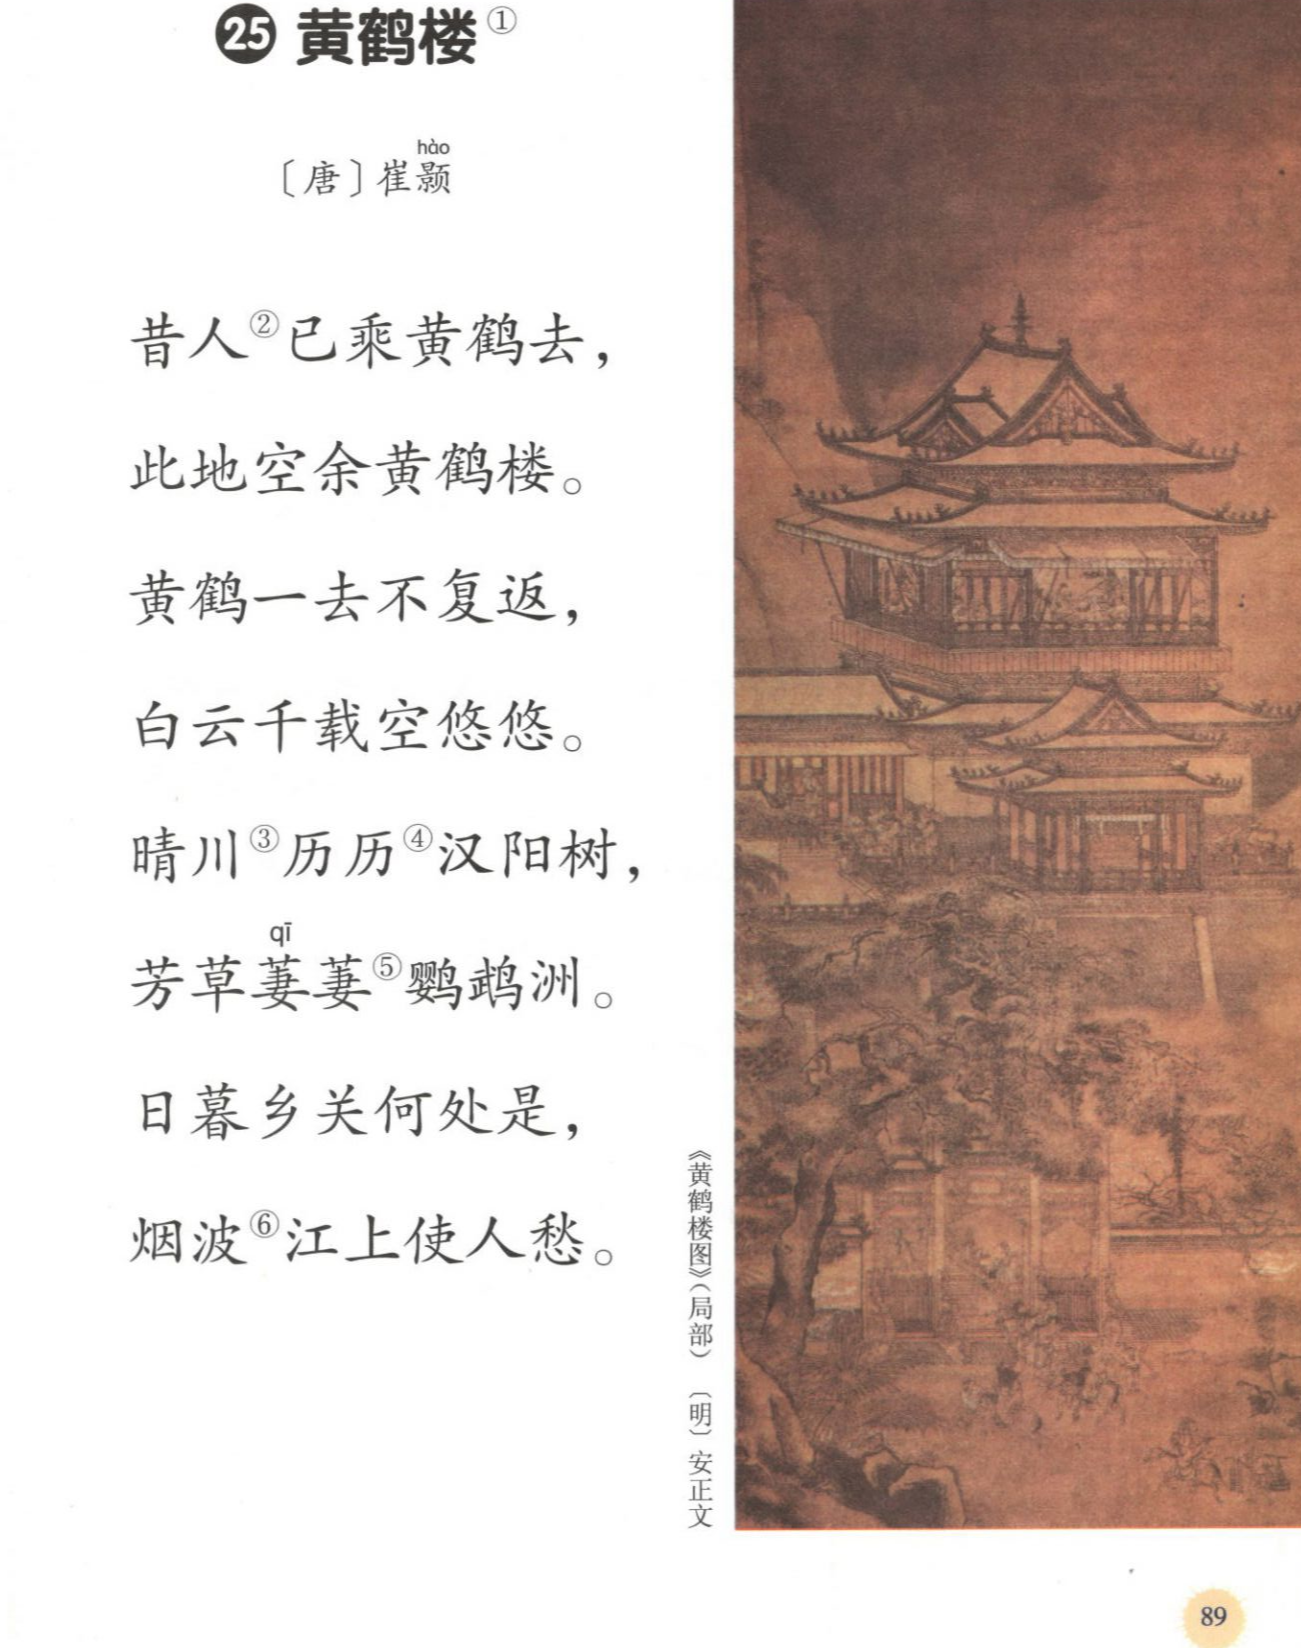 25 黄鹤楼①
hào
〔唐〕崔颢
昔人②已乘黄鹤去，
此地空余黄鹤楼。
黄鹤一去不复返，
白云千载空悠悠。
晴川③历历④汉阳树，
qī
芳草萋萋⑤鹦鹉洲。
日暮乡关何处是，
烟波⑥江上使人愁。
《黄鹤楼图》（局部） 〔明〕安正文
89